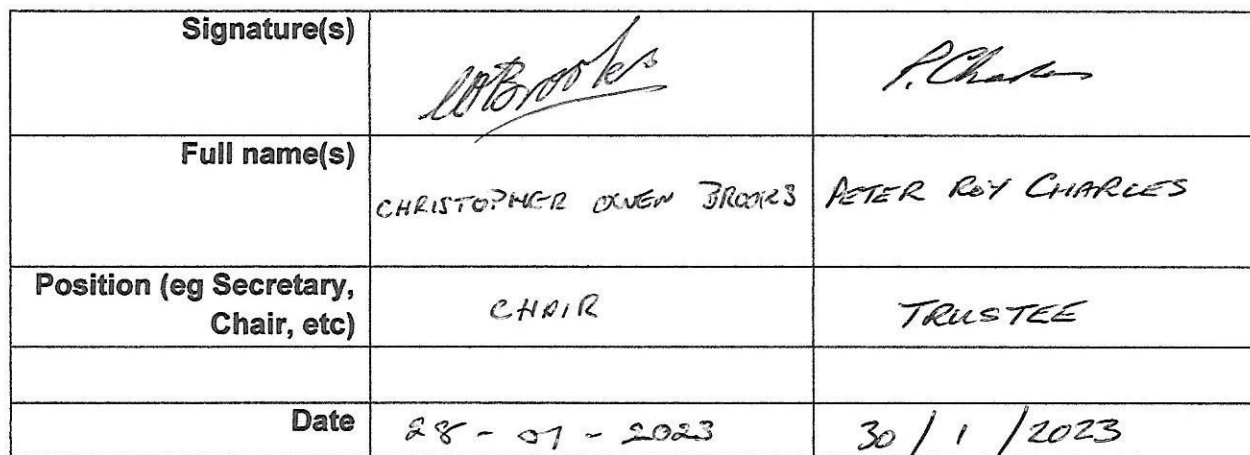 Signature(s) COBrooks P. Charles
Full name(s)
CHRISTOPHER OWEN BROOKS PETER ROY CHARLES
Position (eg Secretary,
Chair, etc) CHAIR TRUSTEE
Date 28 - 01 - 2023 30 / 1 / 2023